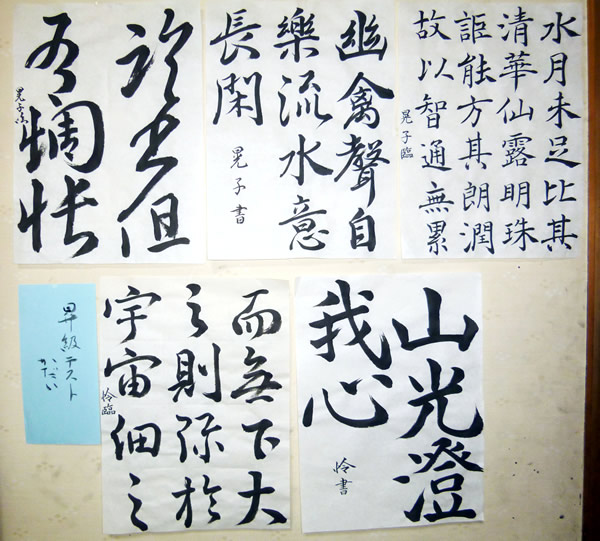 水月未足比其
清華仙露明珠
詎能方其朗潤
故以智通無累
晃子臨
幽禽聲自
樂流水意
長閑
晃子書
但
有惆悵
晃子臨
山光澄
我心
怜書
而無下大
之則弥於
宇宙細之
怜臨
昇級テスト
かだい